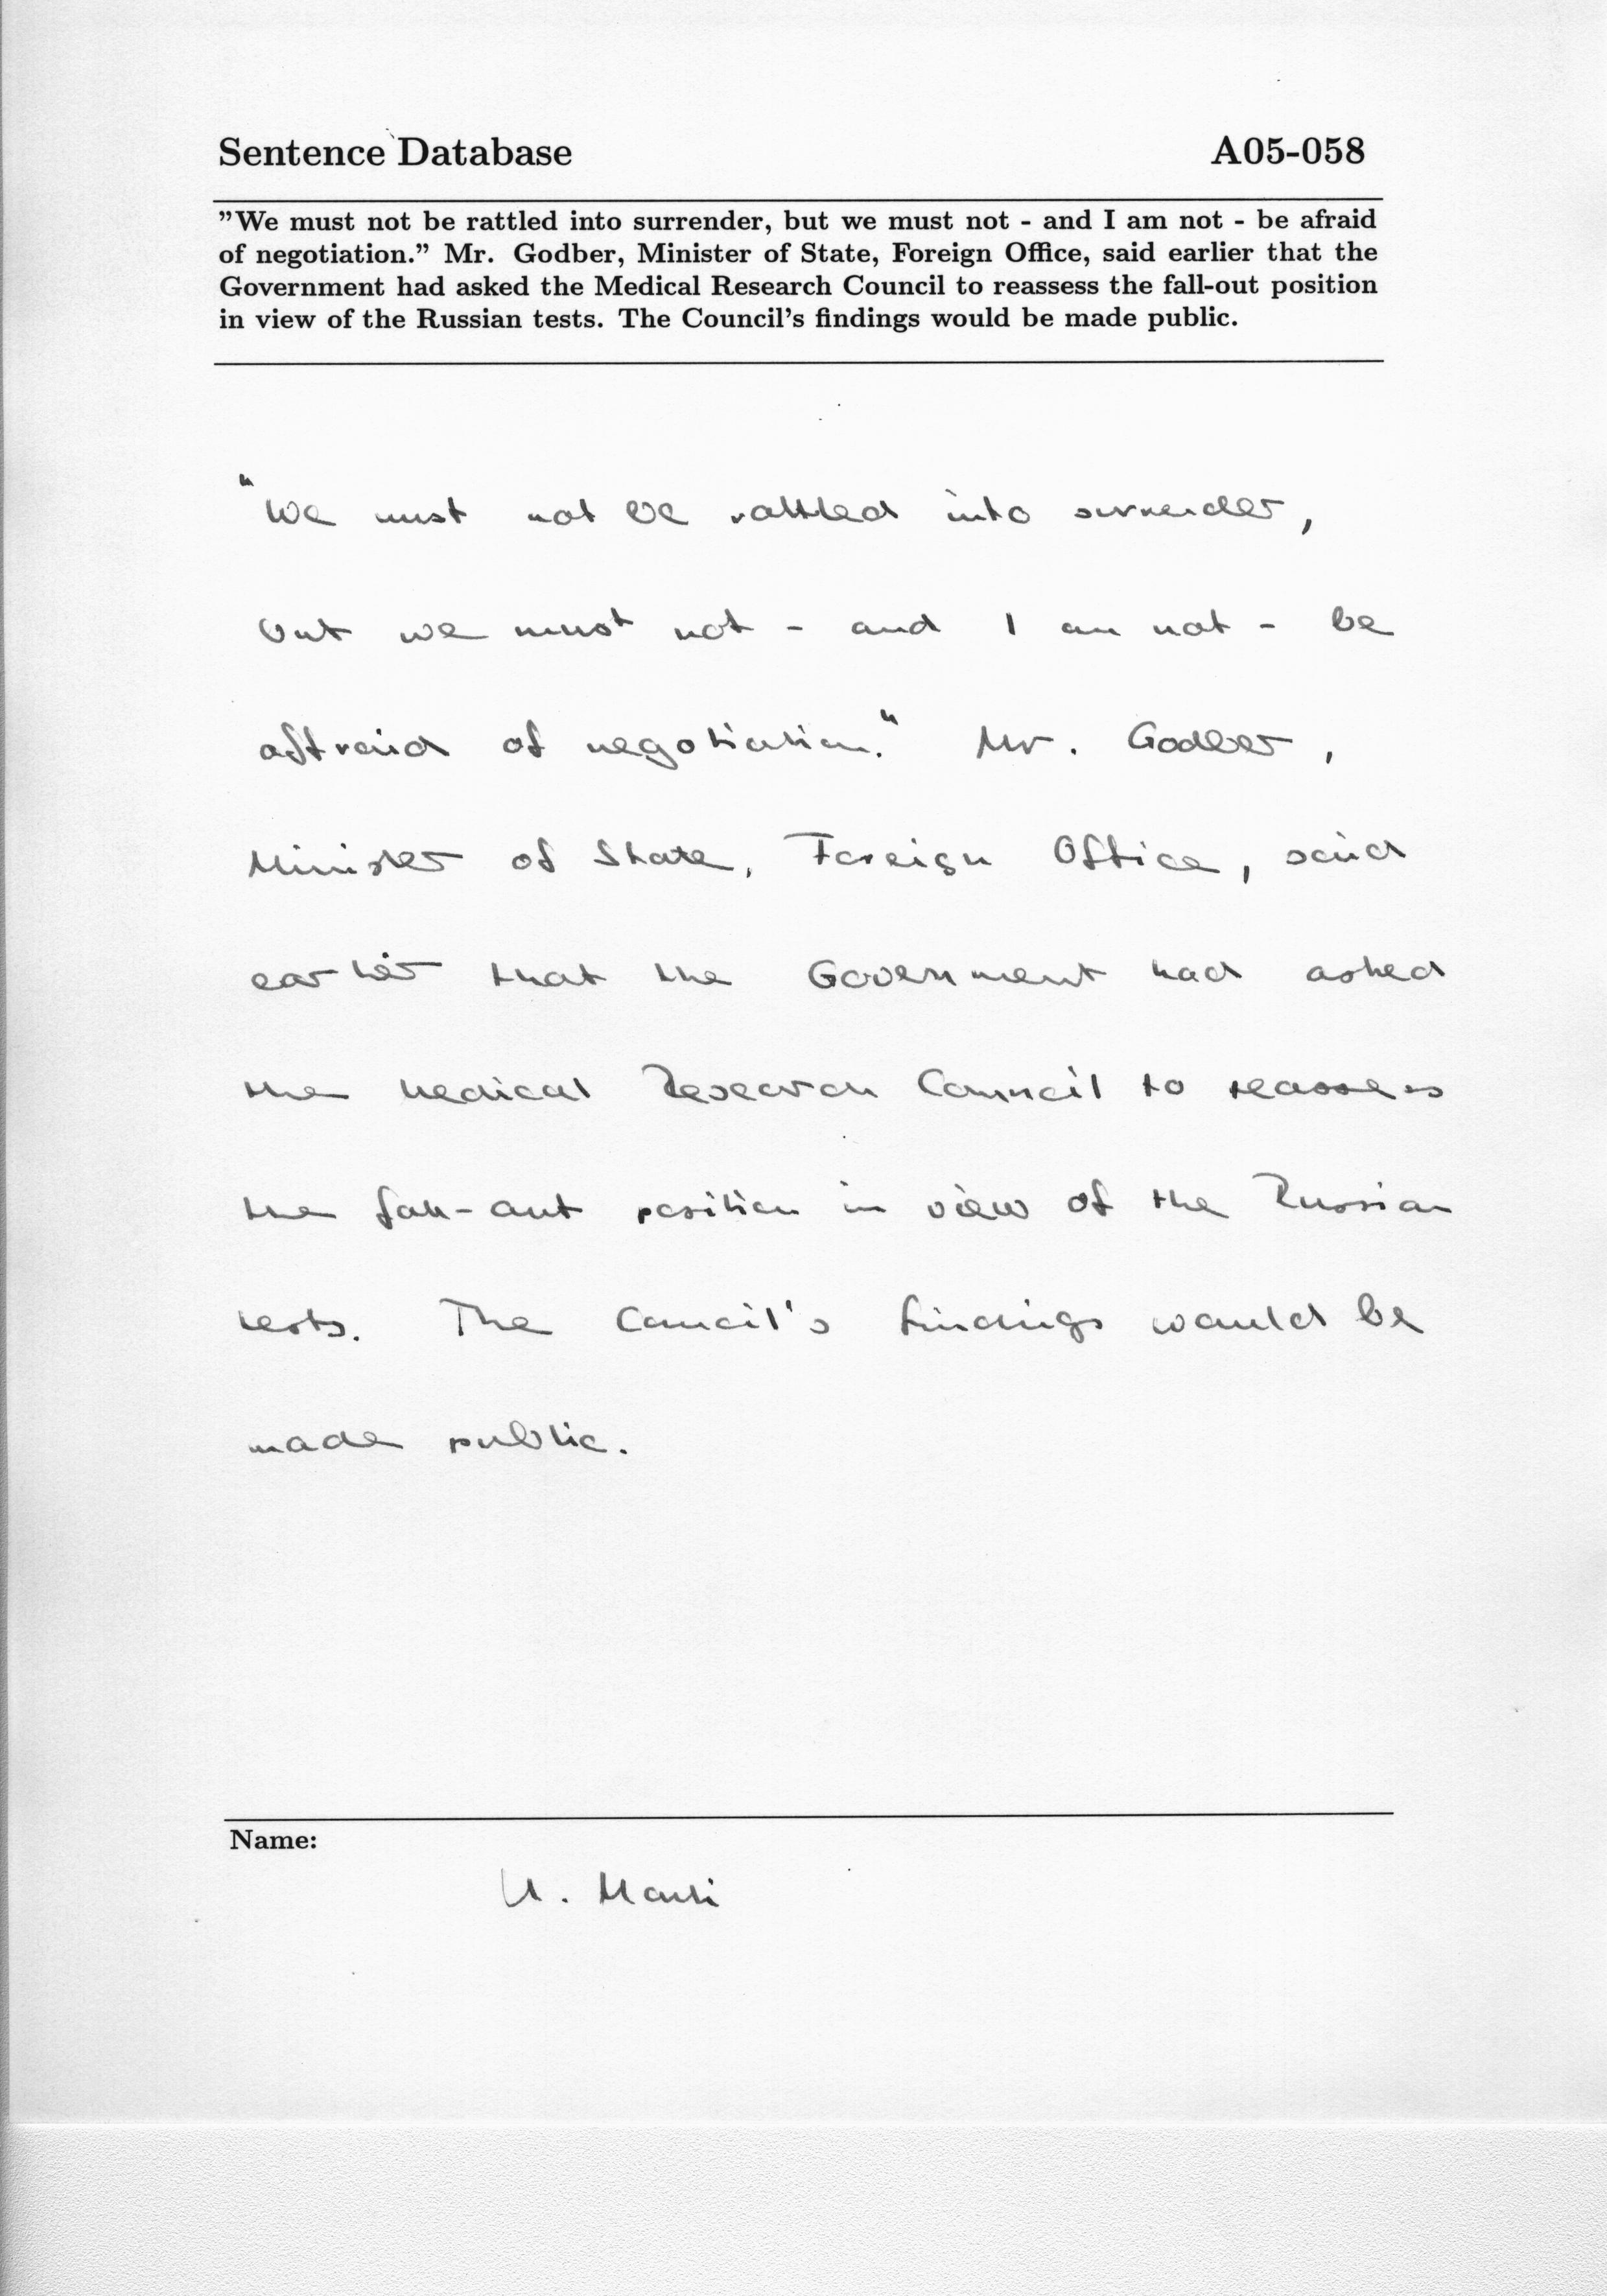 Sentence Database A05-058
"We must not be rattled into surrender, but we must not - and I am not - be afraid
of negotiation." Mr. Godber, Minister of State, Foreign Office, said earlier that the
Government had asked the Medical Research Council to reassess the fall-out position
in view of the Russian tests. The Council's findings would be made public.
"We must not be rattled into surrender,
but we must not - and I am not - be
afraid of negotiation." Mr. Godber,
Minister of State, Foreign Office, said
earlier that the Government had asked
the Medical Research Council to reassess
the fall-out position in view of the Russian
tests. The Council's findings would be
made public.
Name:
U. Marti